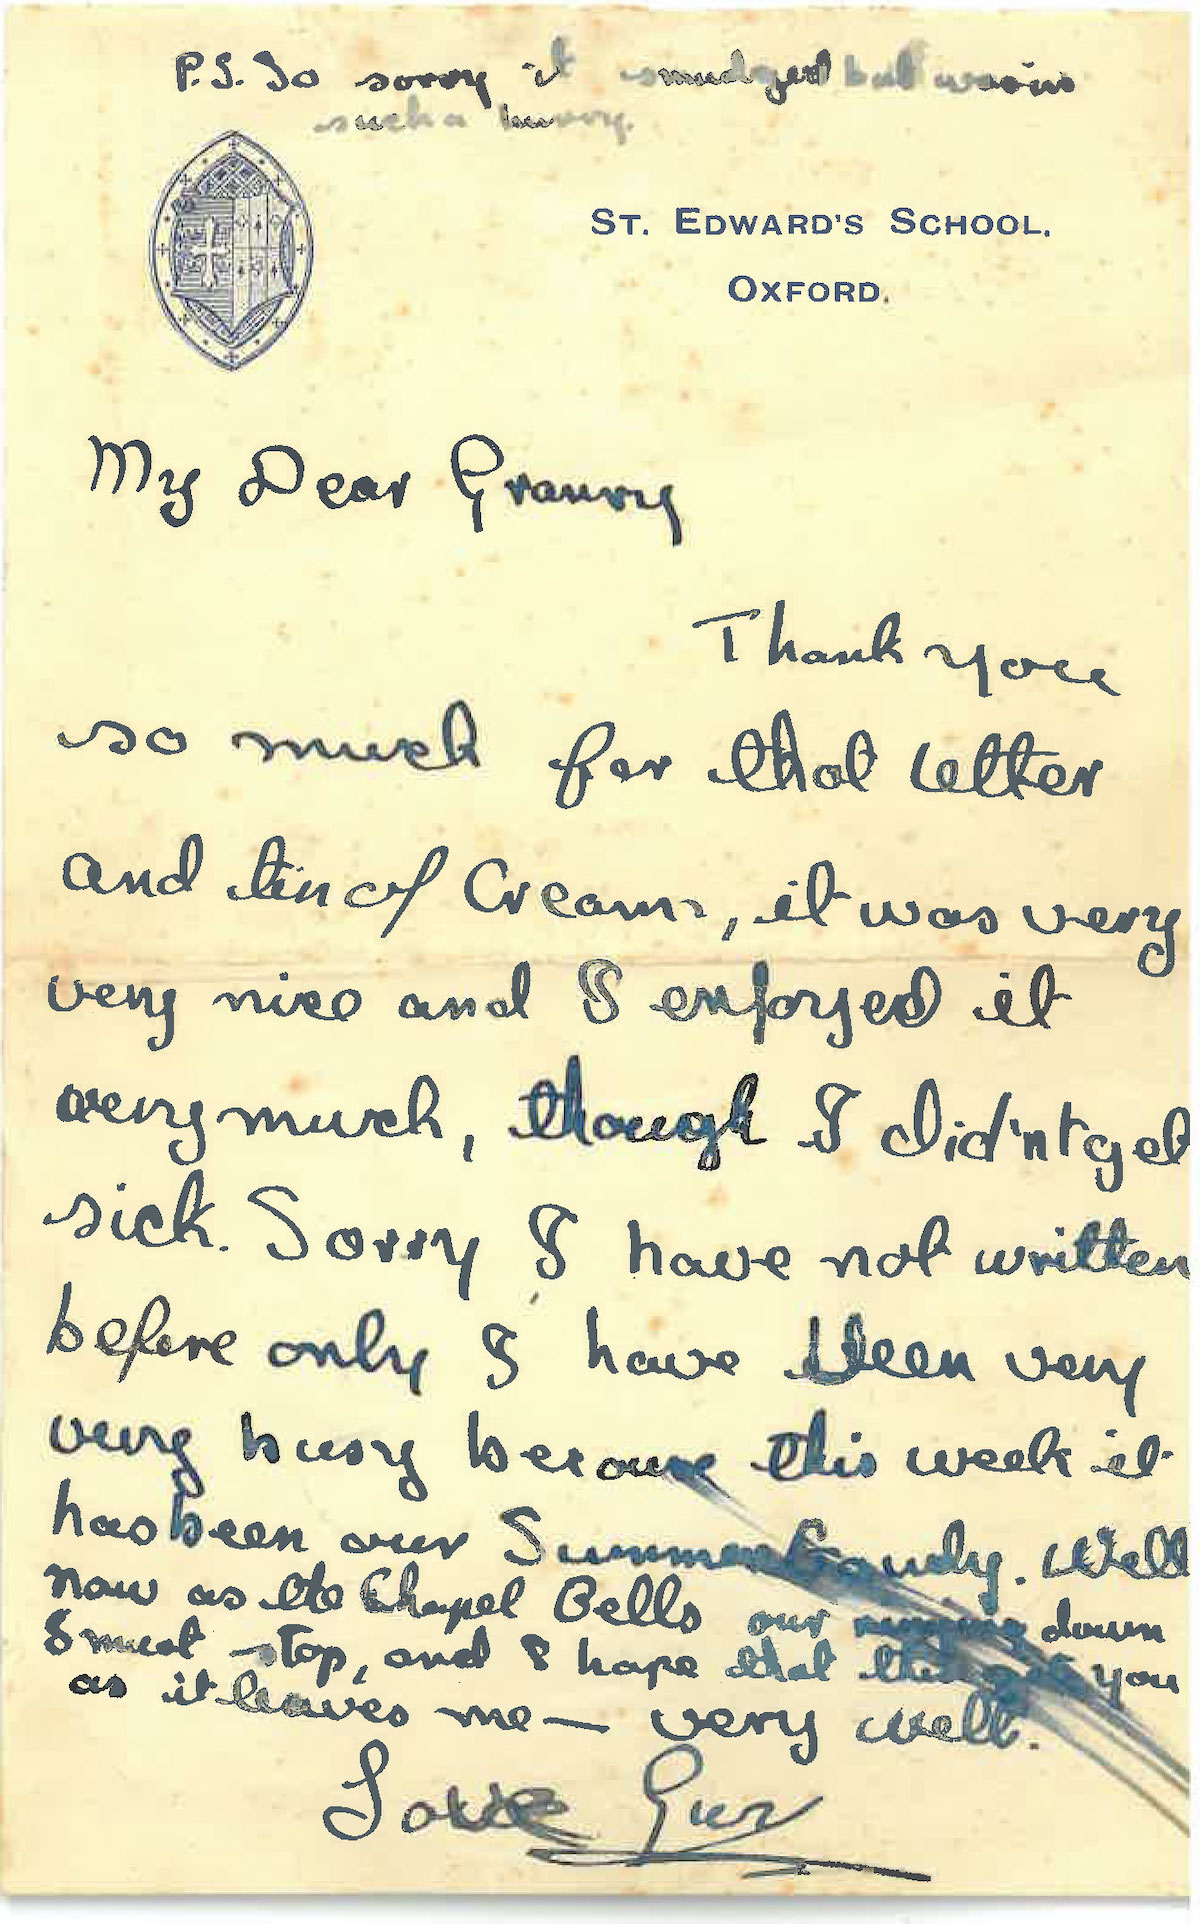 P.S. So sorry it smudged but was in
such a hurry.
ST. EDWARD'S SCHOOL,
OXFORD.
My Dear Granny
Thank you
so much for that letter
and tin of Cream, it was very
very nice and I enjoyed it
very much, though I did'nt get
sick. Sorry I have not written
before only I have been very
very busy because this week it
has been our Summer Gaudy. Well
now as the Chapel Bells our ringing down
I must stop, and I hope that this you
as it leaves me — very well.
Love Guy